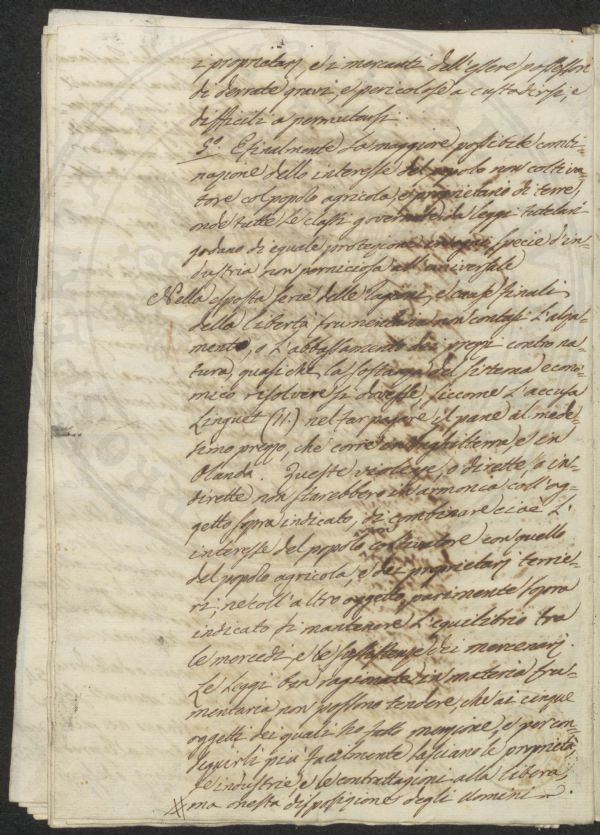 i proprietarj, e i mercanti dell'essere possessori
di derrate gravi, e pericolose a custodirsi, e
difficili a permutarsi.
5.° E finalmente la maggiore possibile combi-
nazione dello interesse del popolo non coltiva-
tore col popolo agricola, e proprietario di terre,
onde tutte le classi governate da leggi tutelari
godano di eguale protezione in ogni specie d'in-
dustria non perniciosa all'universale
Nella esposta serie delle ragioni, e cause finali
della libertà frumentaria non contasi l'alza-
mento, o l'abbassamento dei prezzi contro na-
tura, quasi che la sostanza del sistema econo-
mico risolvere si dovesse, siccome l'accusa
Linguet (11.) nel far pagare il pane al mede-
simo prezzo, che corre in Inghilterra, e in
Olanda. Queste violenze, o dirette, o in-
dirette non starebbero in armonia coll'og-
getto sopra indicato, di combinare cioè l'
interesse del popolo non coltivatore con quello
del popolo agricola, e dei proprietarj terrie-
ri, nè coll'altro oggetto parimente sopra
indicato di mantenere l'equilibrio tra
le mercedi, e le sussistenze dei mercenarj.
Le leggi ben ragionate in materia fru-
mentaria non possono tendere, che ai cinque
oggetti dei quali ho fatto menzione, e per con-
seguirli più facilmente lasciano le proprietà
le industrie, e le contrattazioni alla libera,
ma onesta disposizione degli uomini.